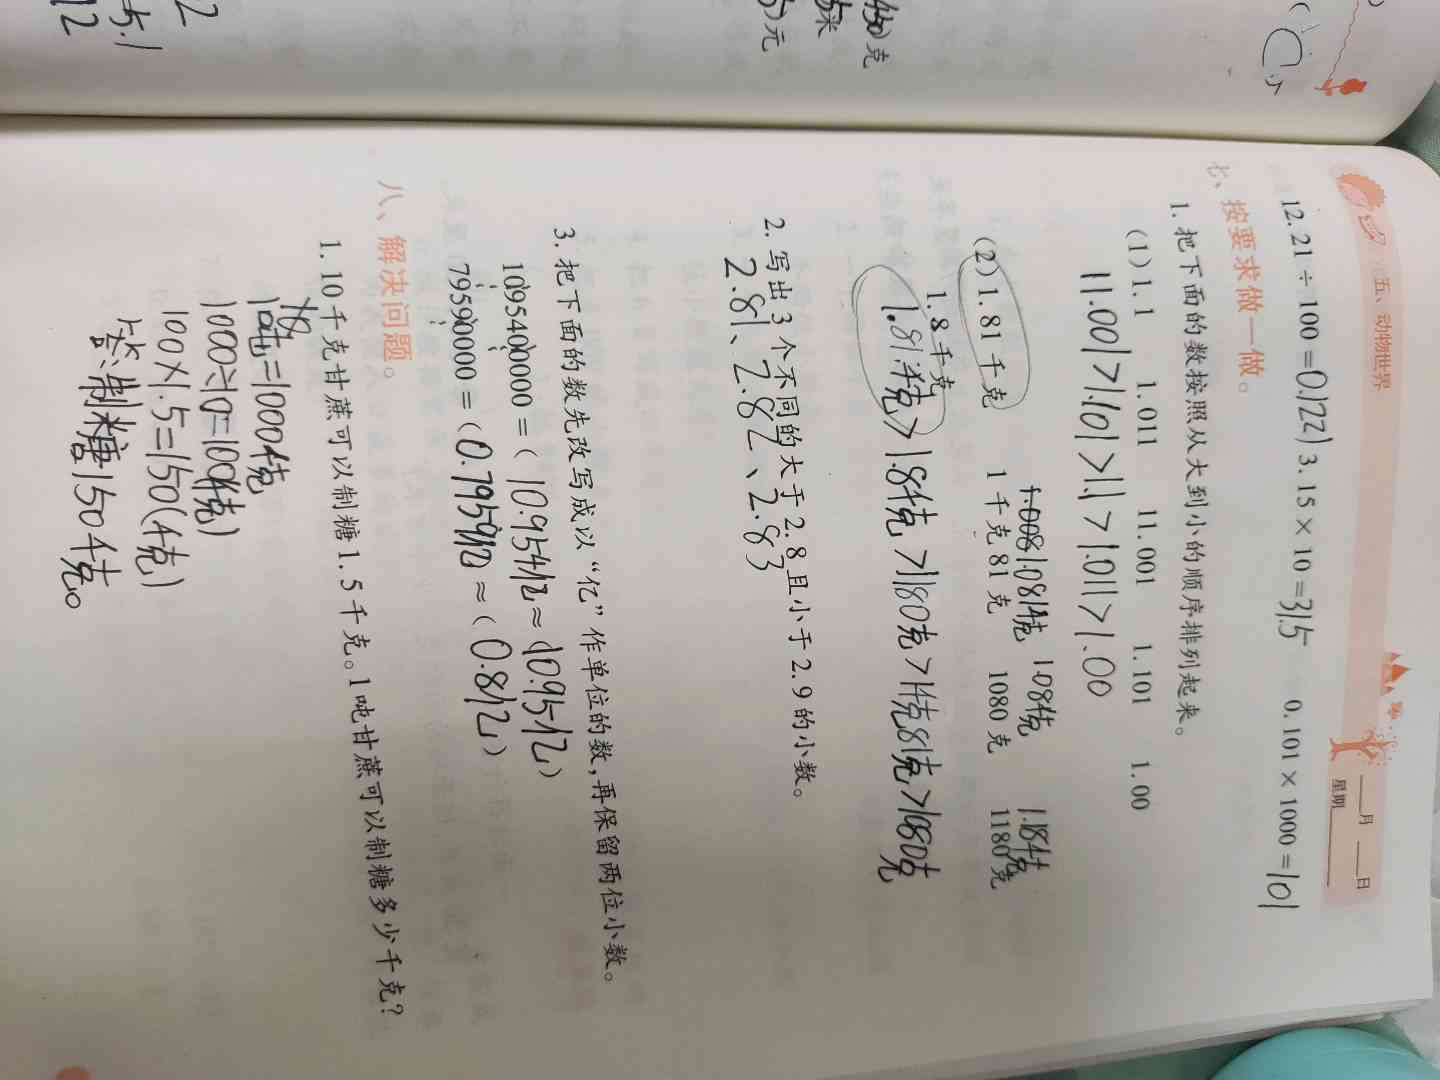 五、动物世界
月 日
星期
12.21÷100=0.1221 3.15×10=31.5 0.101×1000=101
七、按要求做一做。
1. 把下面的数按照从大到小的顺序排列起来。
(1) 1.1 1.011 11.001 1.101 1.00
11.001>1.101>1.1>1.011>1.00
1.081千克 1.08千克 1.18千克
(2) 1.81千克 1千克81克 1080克 1180克
1.8千克
1.81千克>1.8千克>1180克>1千克81克>1080克
2. 写出3个不同的大于2.8且小于2.9的小数。
2.81、2.82、2.83
3. 把下面的数先改写成以“亿”作单位的数,再保留两位小数。
1095400000=(10.954亿≈(10.95亿)
79590000=(0.7959亿)≈(0.8亿)
八、解决问题。
1. 10千克甘蔗可以制糖1.5千克。1吨甘蔗可以制糖多少千克?
1吨=1000千克
1000÷10=100(千克)
100×1.5=150(千克)
答:制糖150千克。